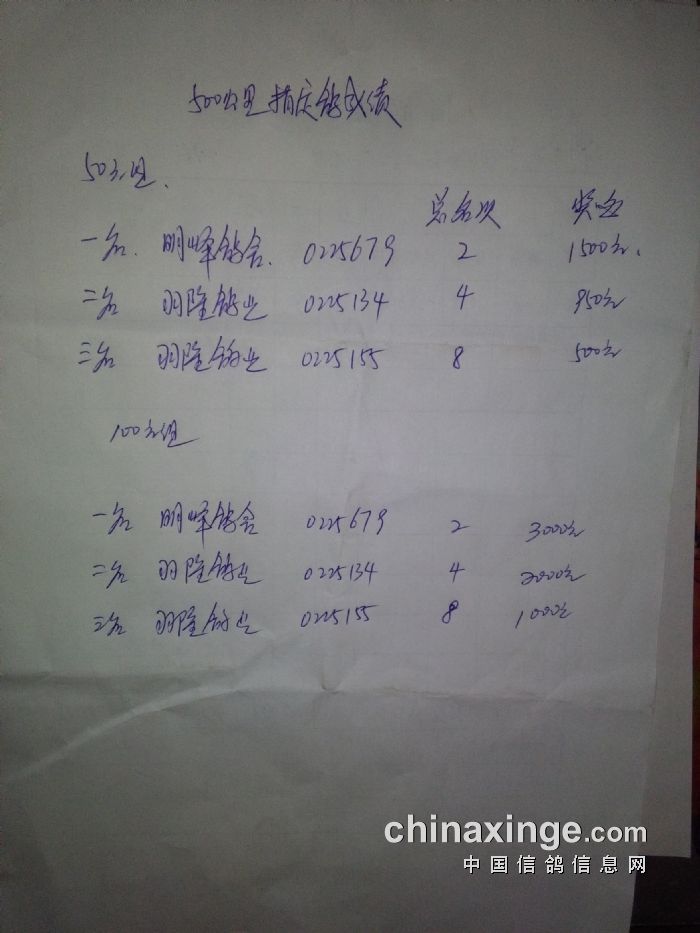 500公里指定鸽成绩
50元组.
总名次 奖金
一名. 明峰鸽舍. 0225679 2 1500元.
二名 羽隆鸽业 0225134 4 950元
三名 羽隆鸽业 0225155 8 500元
100元组
一名 明峰鸽舍 0225679 2 3000元
二名 羽隆鸽业 0225134 4 2000元
三名 羽隆鸽业 0225155 8 1000元
chinaxinge.com
中国信鸽信息网